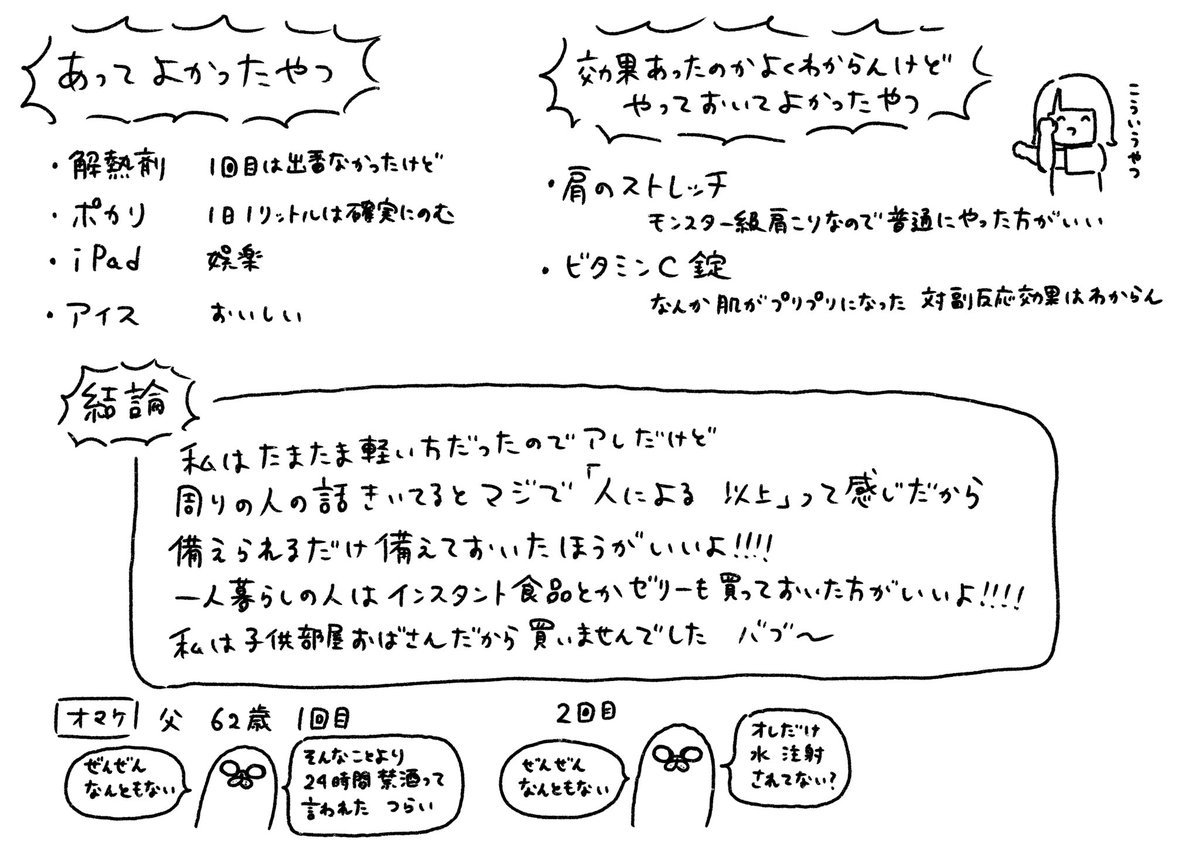 あってよかったやつ
・解熱剤 1回目は出番なかったけど
・ポカリ 1日1リットルは確実にのむ
・iPad 娯楽
・アイス おいしい
効果あったのかよくわからんけど
やっておいてよかったやつ
こういうやつ
・肩のストレッチ
モンスター級肩こりなので普通にやった方がいい
・ビタミンC錠
なんか肌がプリプリになった 対副反応効果はわからん
結論
私はたまたま軽い方だったのでアレだけど
周りの人の話きいてるとマジで「人による 以上」って感じだから
備えられるだけ備えておいたほうがいいよ!!!!
一人暮らしの人はインスタント食品とかゼリーも買っておいた方がいいよ!!!!
私は子供部屋おばさんだから買いませんでした バブ〜
オマケ 父 62歳 1回目
ぜんぜん
なんともない
そんなことより
24時間禁酒って
言われた つらい
2回目
ぜんぜん
なんともない
オレだけ
水 注射
されてない?